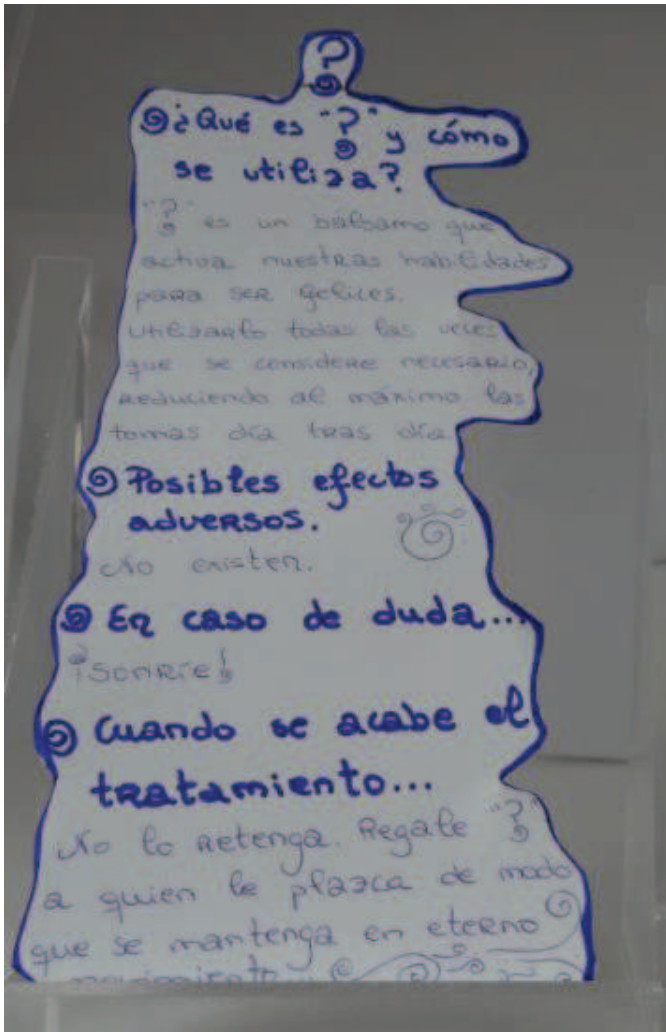 ?
¿Qué es "?" y cómo
se utiliza?
"?" es un bálsamo que
activa nuestras habilidades
para ser felices.
Utilizarlo todas las veces
que se considere necesario,
reduciendo al máximo las
tomas día tras día.
Posibles efectos
adversos.
No existen.
En caso de duda...
¡Sonríe!
Cuando se acabe el
tratamiento...
No lo retenga. Regale "?"
a quien le plazca de modo
que se mantenga en eterno
movimiento